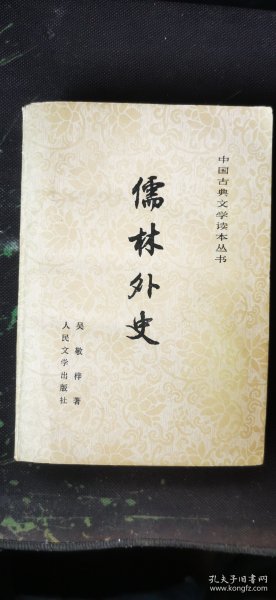 中国古典文学读本丛书
儒林外史
吴敬梓 著
人民文学出版社
孔夫子旧书网